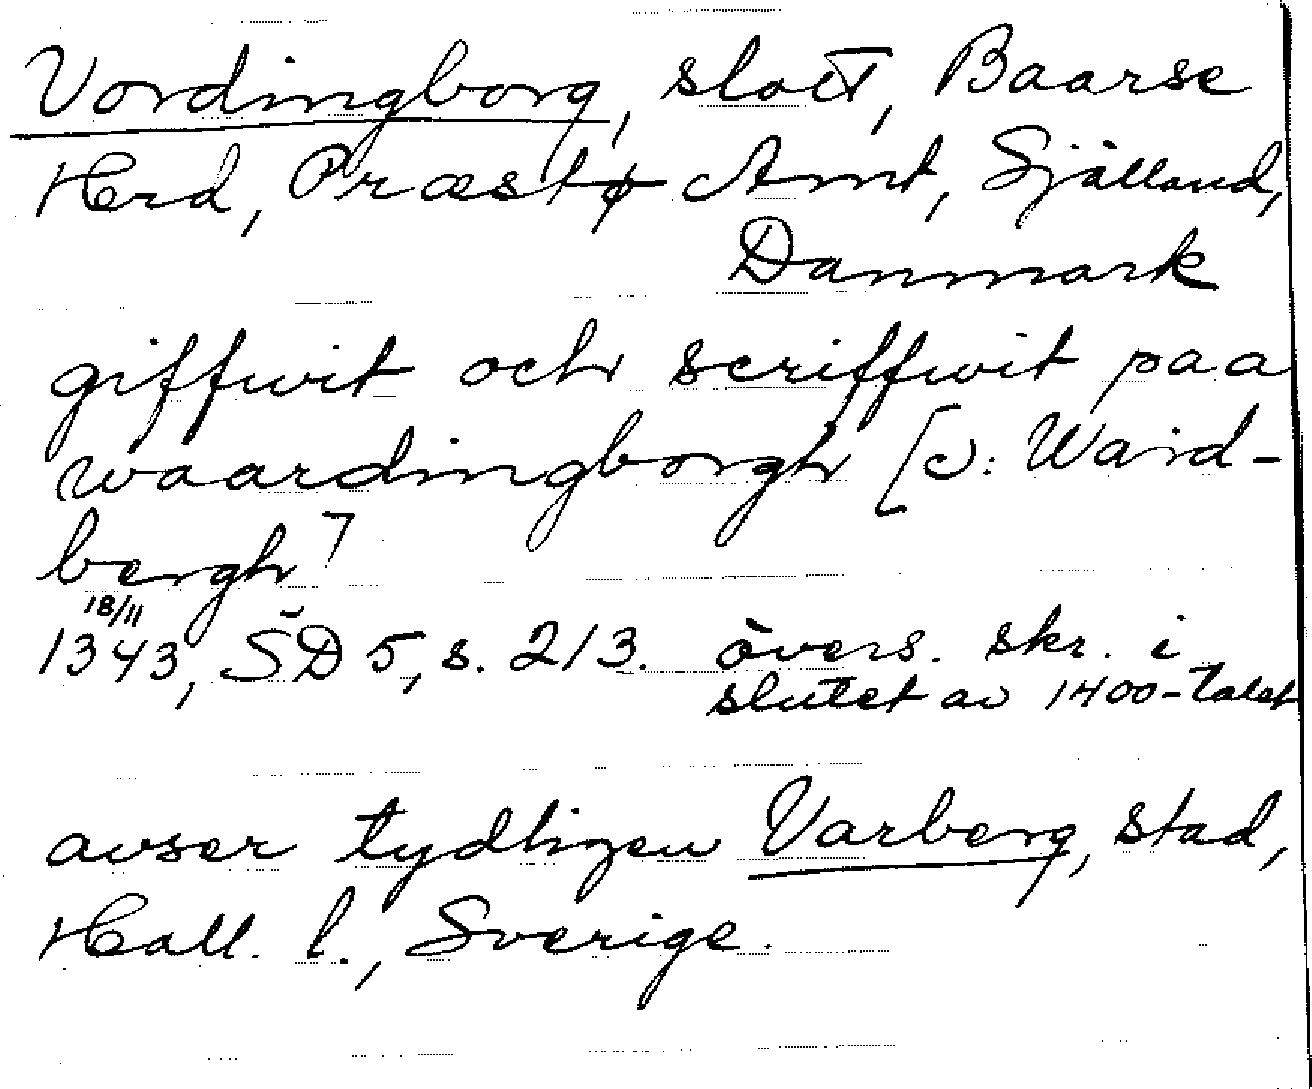 Vordingborg, slott, Baarse
Herd, Præstø Amt, Sjælland,
Danmark
giffwit och scriffwit paa
waardingborgh [ɔ: Ward-
bergh]
18/11
1343, SD 5, s. 213. övers. skr. i
slutet av 1400-talet
avser tydligen Varberg, stad,
Hall. l., Sverige.